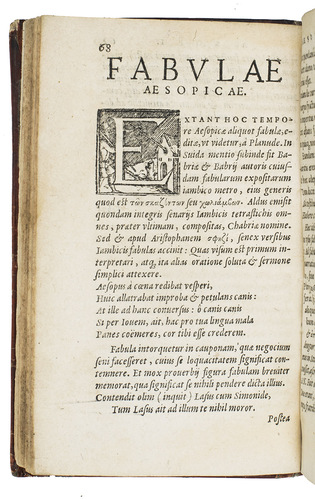 68
FABVLAE
AESOPICAE.
EXTANT HOC TEMPO-
re Aesopicæ aliquot fabulæ, e-
ditæ, vt videtur, à Planude. In
Suida mentio subinde fit Ba-
briæ & Babrij autoris cuius-
dam fabularum expositarum
iambico metro, eius generis
quod est τῶν σκαζόντων seu χωλιάμβων. Aldus emisit
quondam integris senarijs Iambicis tetrastichis om-
nes, præter vltimam, compositas, Chabriæ nomine.
Sed & apud Aristophanem σφηξὶ, senex versibus
Iambicis fabulas accinit: Quas visum est primum in-
terpretari, atq, ita alias oratione soluta & sermone
simplici attexere.
Aesopus à cœna redibat vesperi,
Huic allatrabat improba & petulans canis:
At ille ad hanc conuersus: ô canis canis
Si per Iouem, ait, hac pro tua lingua mala
Panes coëmeres, cor tibi esse crederem.
Fabula intorquetur in cauponam, quæ negocium
seni facesseret, cuius se loquacitatem significat con-
temnere. Et mox prouerbij figura fabulam breuiter
memorat, qua significat se nihili pendere dicta illius.
Contendit olim (inquit) Lasus cum Simonide,
Tum Lasus ait ad illum te nihil moror.
Postea